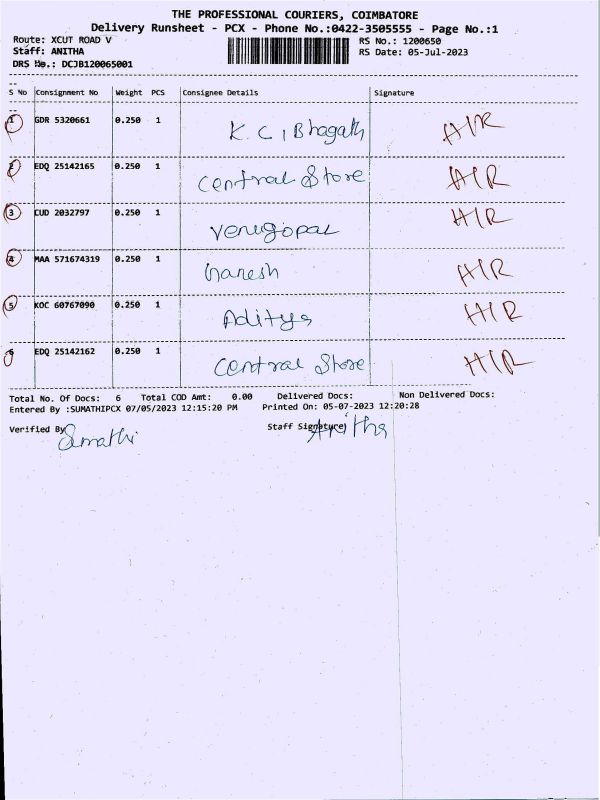 THE PROFESSIONAL COURIERS, COIMBATORE
Delivery Runsheet - PCX - Phone No.:0422-3505555 - Page No.:1
Route: XCUT ROAD V RS No.: 1200650
Staff: ANITHA RS Date: 05-Jul-2023
DRS No.: DCJB120065001
S No Consignment No Weight PCS Consignee Details Signature
1 GDR 5320661 0.250 1 K.C. Bhagath HIR
2 EDQ 25142165 0.250 1 Central Store HIR
3 CUD 2032797 0.250 1 Venugopal HIR
4 MAA 571674319 0.250 1 Ganesh HIR
5 KOC 60767090 0.250 1 Aditya HIR
6 EDQ 25142162 0.250 1 Central Store HIR
Total No. Of Docs: 6 Total COD Amt: 0.00 Delivered Docs: Non Delivered Docs:
Entered By :SUMATHIPCX 07/05/2023 12:15:20 PM Printed On: 05-07-2023 12:20:28
Verified By Sumathi Staff Signature) Anitha